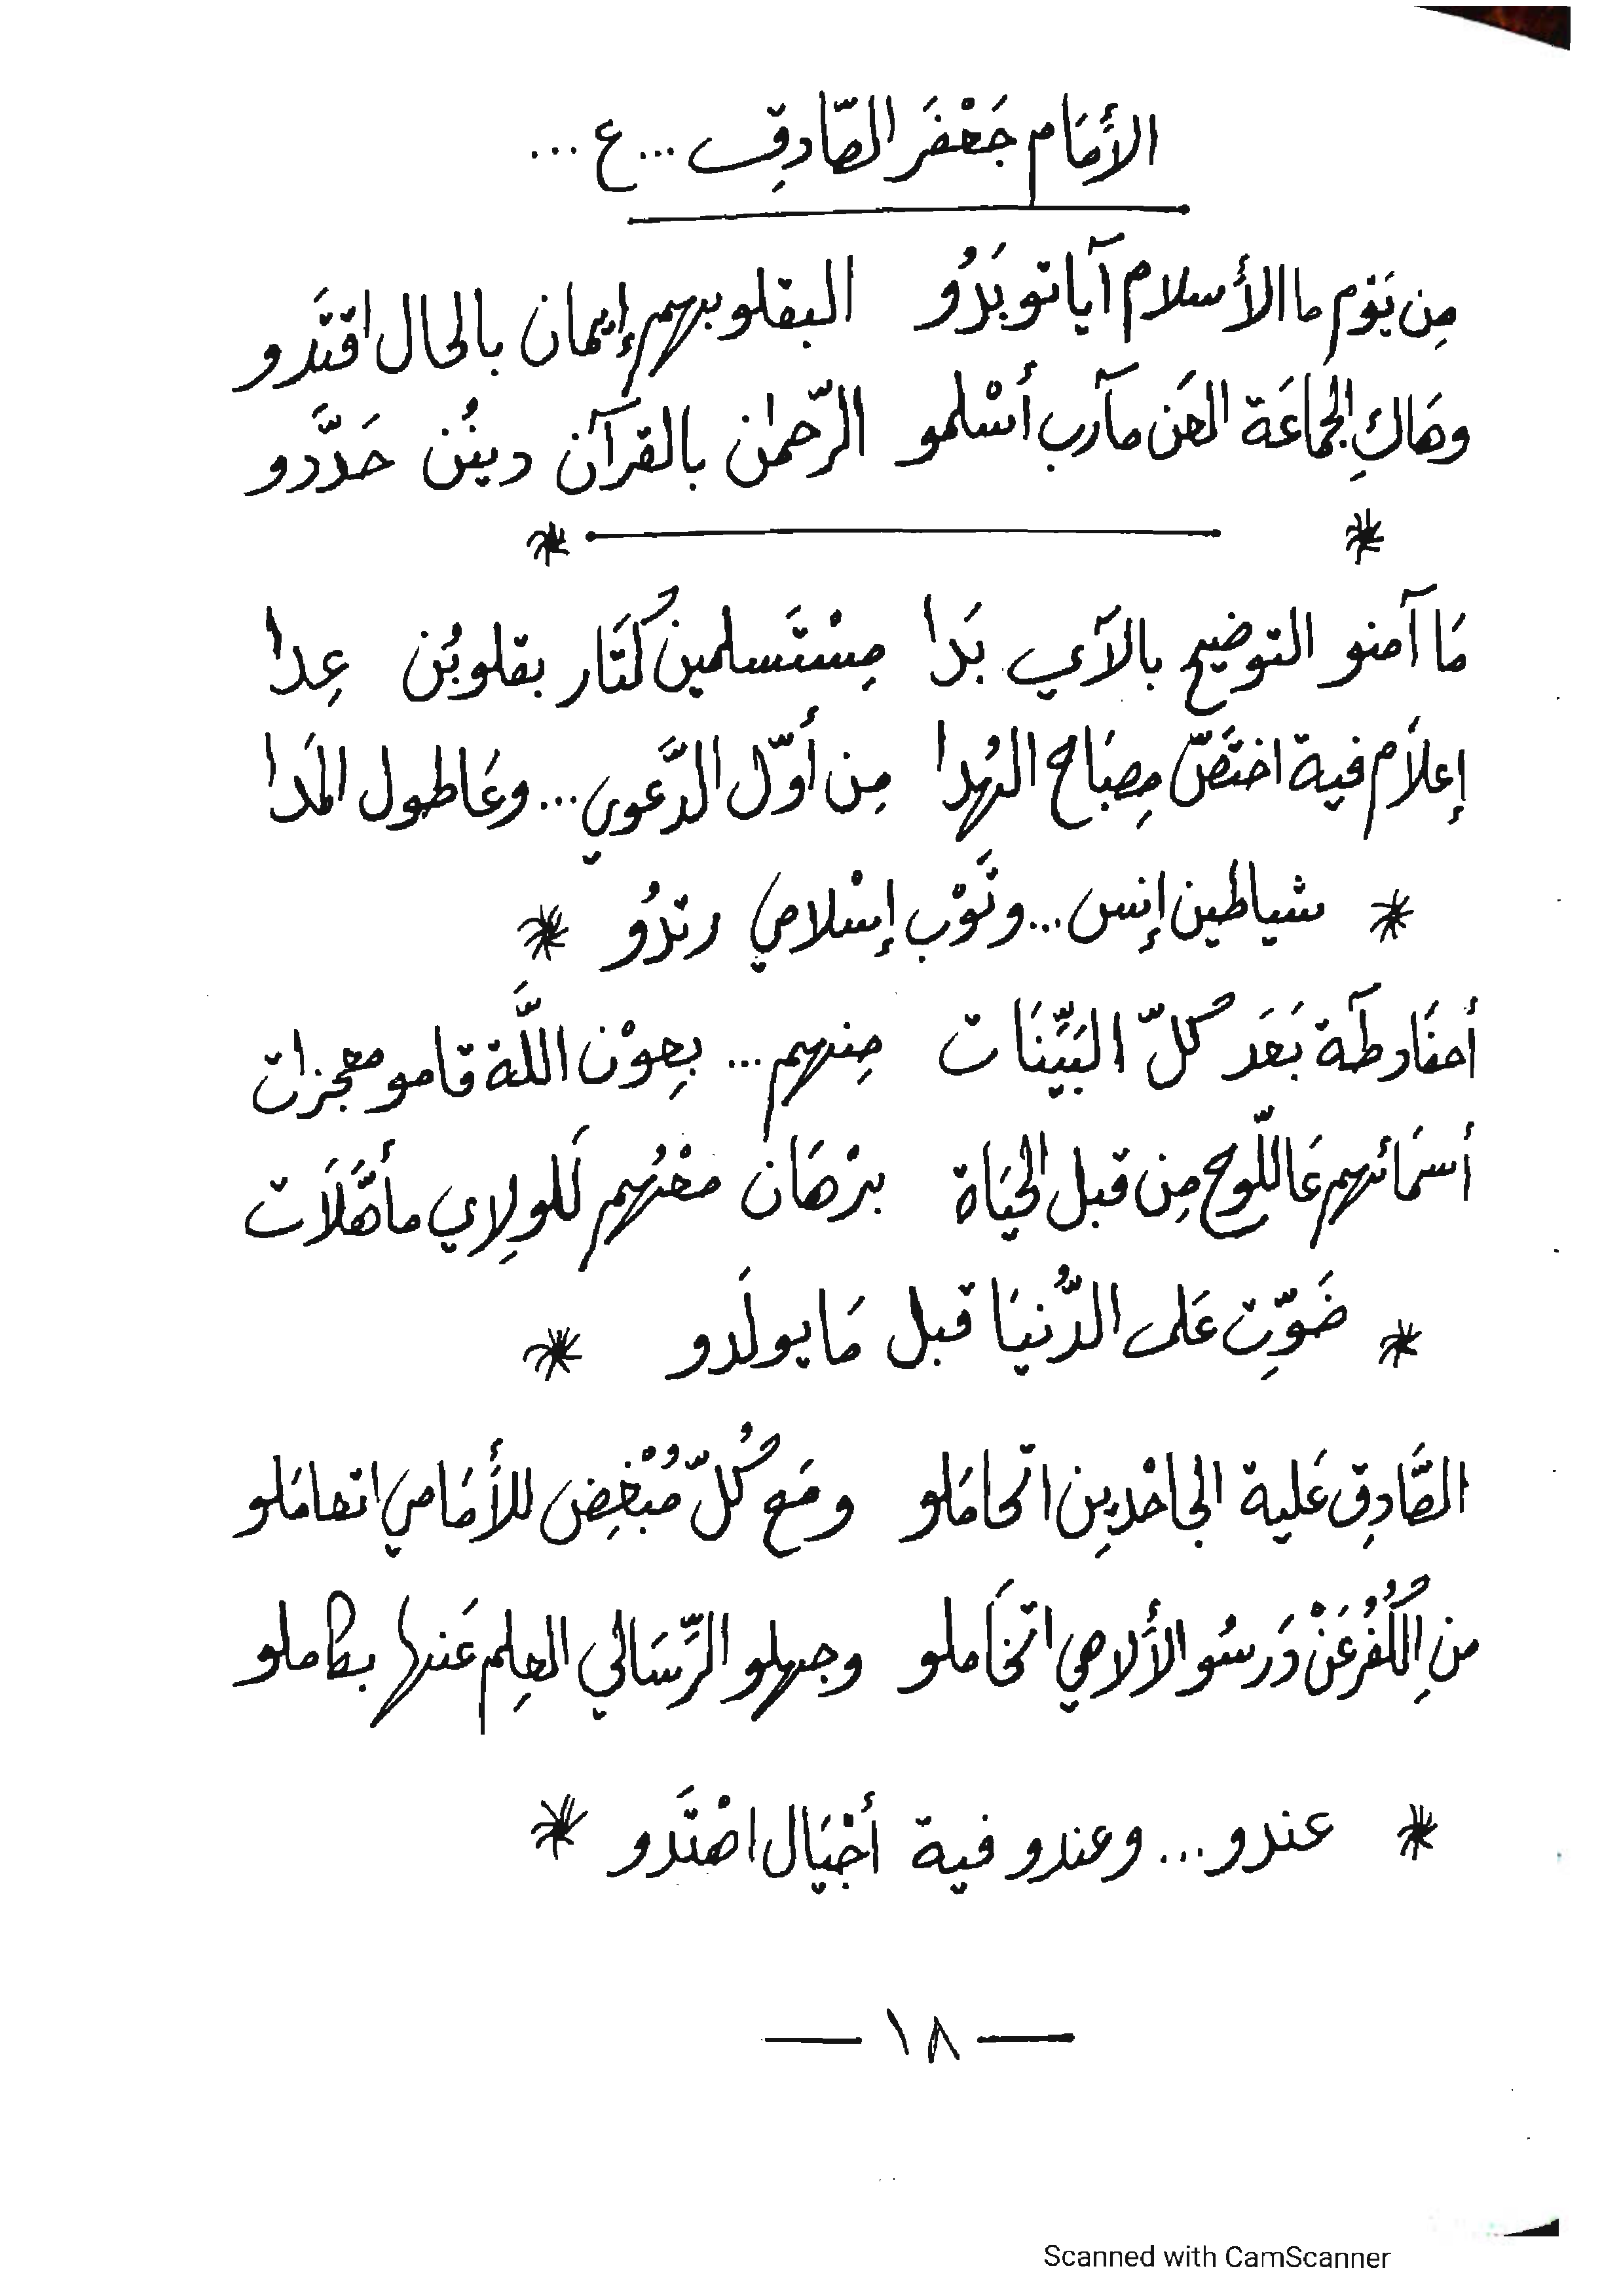 الأمَام جَعْفَر الصَّادِق ... ع ...
مِن يَوْم ما الأسلام آياتو بَدُو البقلوبهم إيمان بالحال اقتَدو
وهَاكِ الجماعَة العَن مآرب أسْلمو الرّحمٰن بالقرآن دينُن حَدَّدو
* *
مَا آمنو التوضيح بالآي بَدا مِسْتَسلمين كُتَار بقلوبُن عِدا
إعلَام فية اختَصّ مِصبَاح الهُدا مِن أوّل الدَّعوي ... وعَا طول المَدا
* شياطين إنس ... وتَوْب إسْلامي رتدُو *
أحفَاد طَة بَعَد كلّ البَيِّنَات مِنهم ... بِعوْن اللَّة قامو معجزات
أسمَائهم عَا اللّوح مِن قبل الحيَاة برْهَان معْهُم لَلولِاي مأهَّلَات
* ضَوِّت عَلى الدُّنيَا قبل مَا يولَدو *
الصَّادِق عَلية الجاحْدِين اتحامَلو ومَع كُلّ مُبْغِض للأمَامي اتعامَلو
منِ الكُفُر عَنْ دَرسُو الألاهي اتخَاملو وجهلو الرِّسَالي العِلم عَنها بكاملو
* عندو ... وعندو فية أجْيَال اهْتَدو *
— ١٨ —
Scanned with CamScanner